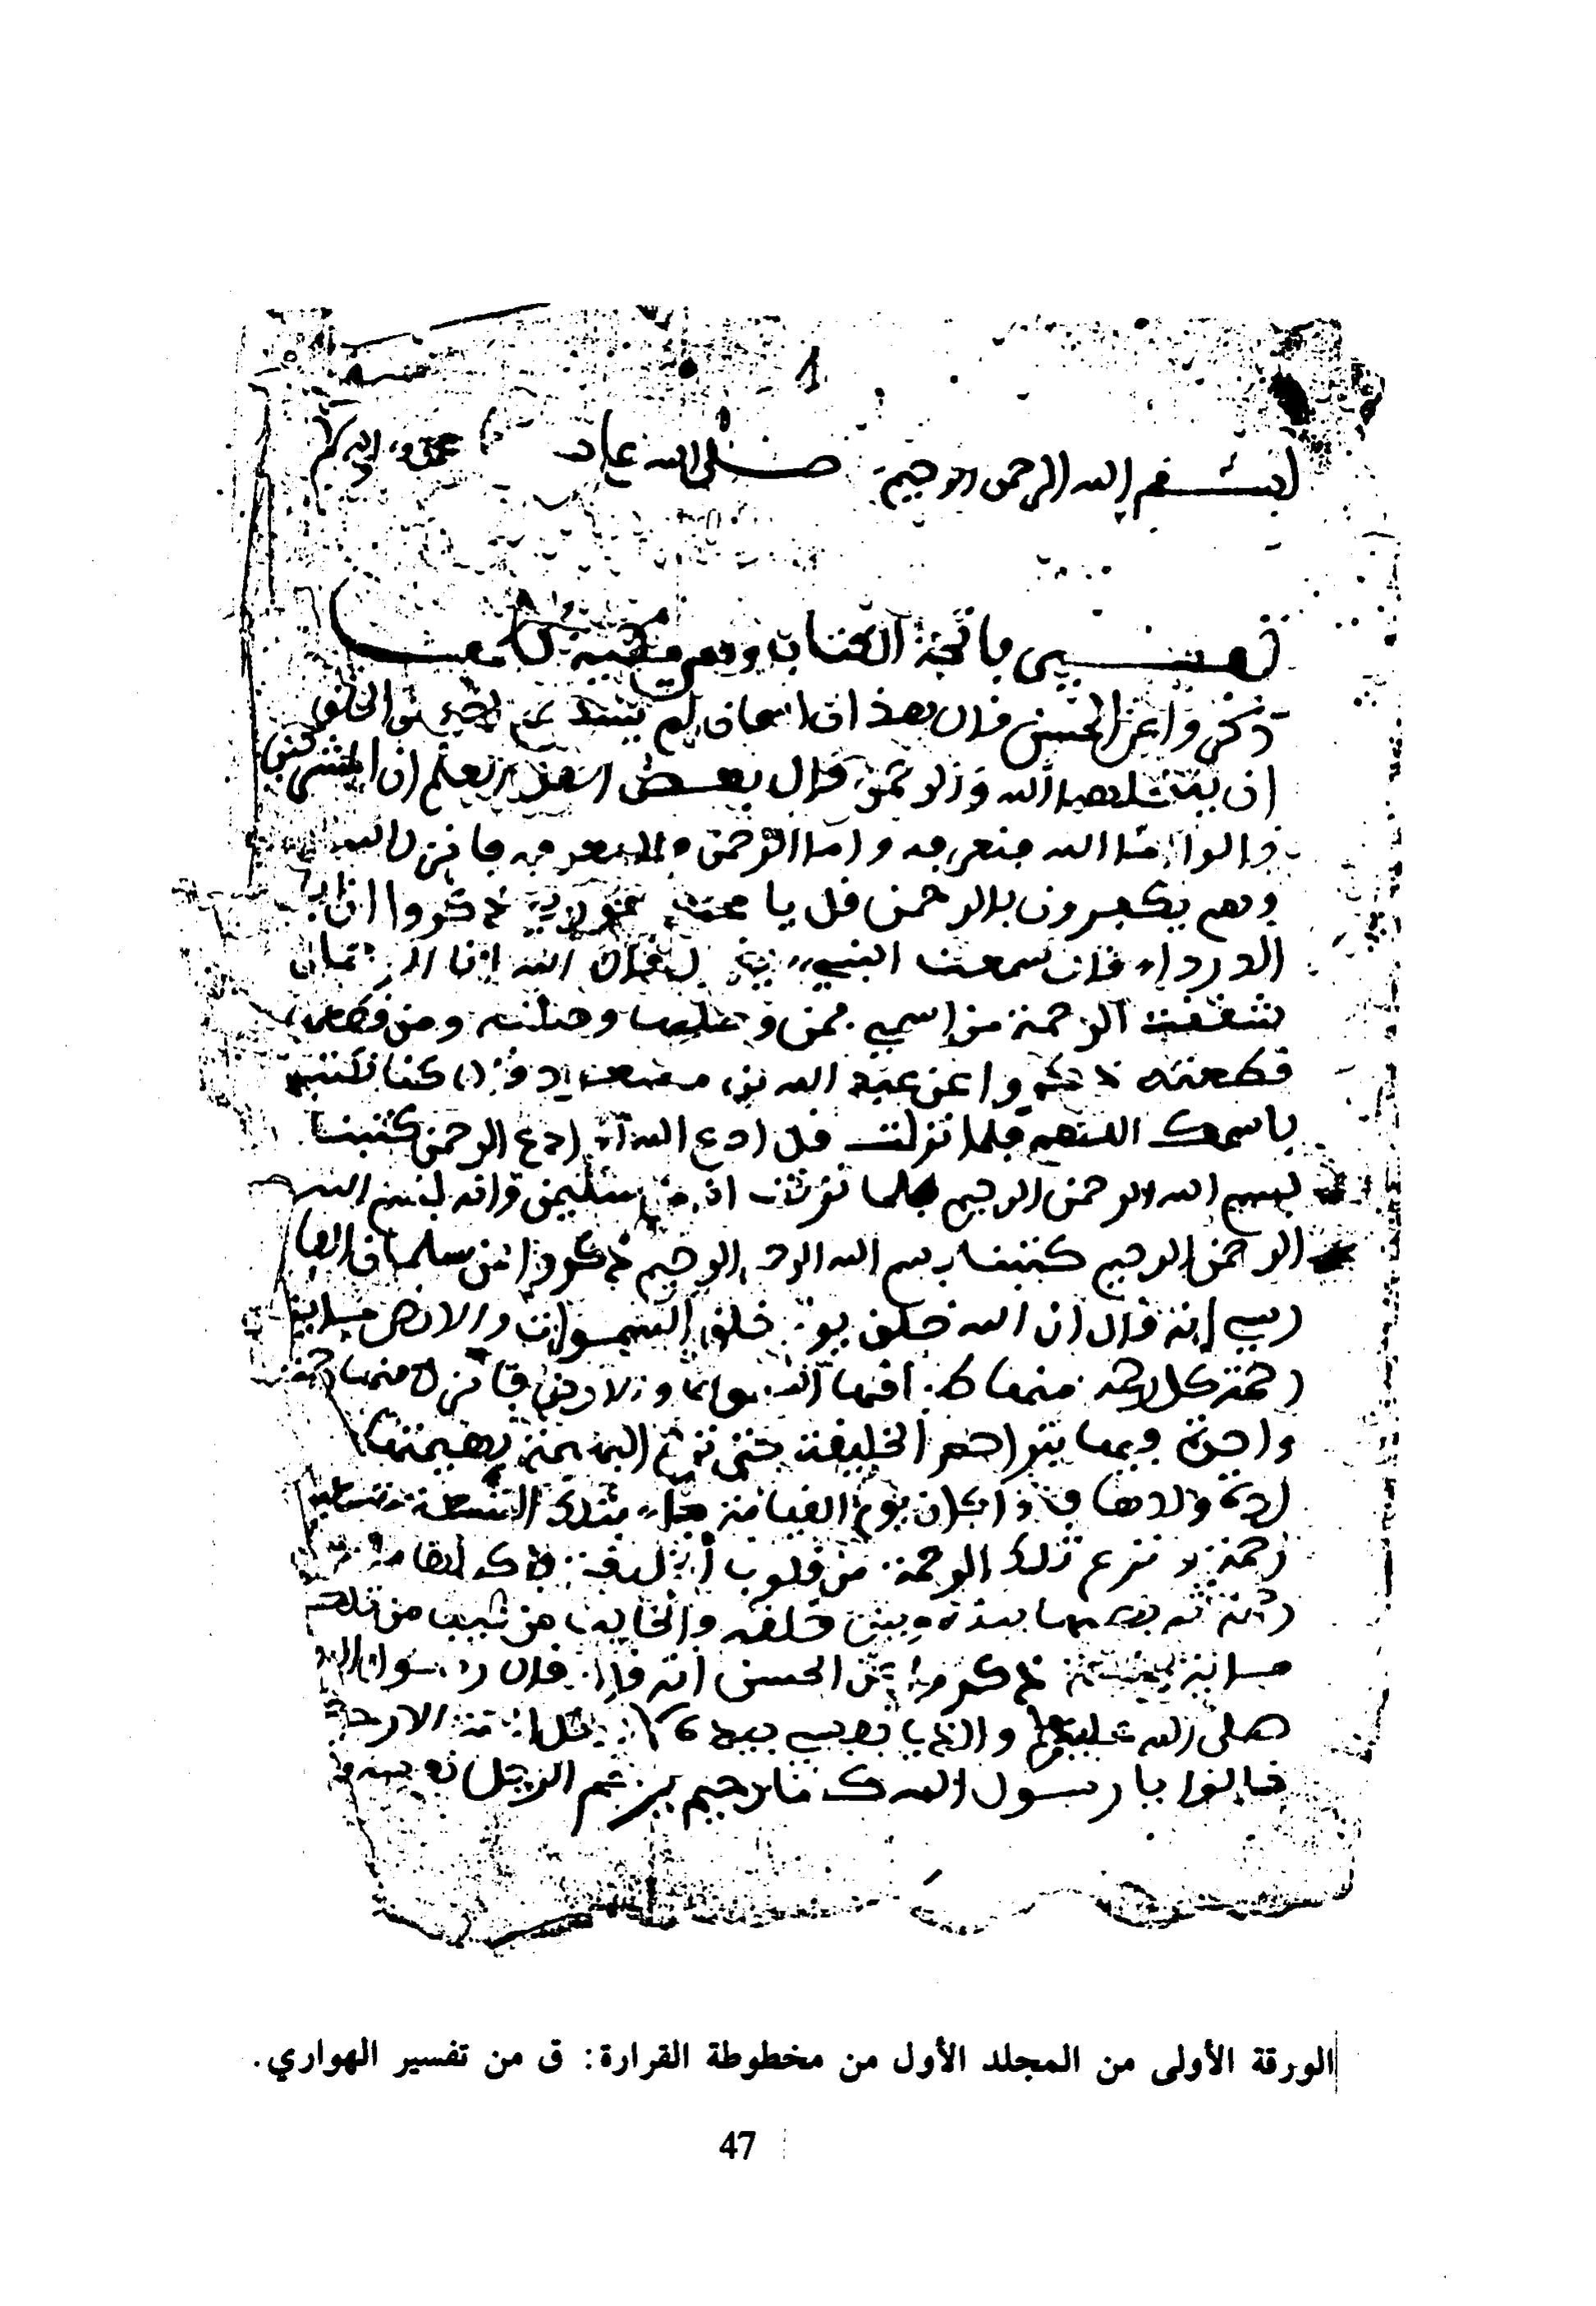 1
بسم الله الرحمن الرحيم صلى الله على
تفسير فاتحة الكتاب وهي مكية كلها
ذكروا عن الحسن قال هذان اسمان لم يستطع أحد من الخلق
ان ينتحلهما الله والرحمن قال بعض اهل العلم ان المشركين
قالوا اما الله فنعرفه واما الرحمن فلا نعرفه فانزل الله
وهم يكفرون بالرحمن قل يا محمد هو ربي ذكروا ان ابا
الدرداء قال سمعت النبي الله انا الرحمان
شققت الرحمة من اسمي فمن وصلها وصلته ومن قطعها
قطعته ذكروا عن عبد الله بن مسعود قال كنا نكتب
باسمك اللهم فلما نزلت قل ادع الله او ادع الرحمن كتبنا
بسم الله الرحمن الرحيم فلما نزلت انه من سليمن وانه بسم الله
الرحمن الرحيم كتبنا بسم الله الرحمن الرحيم ذكروا عن سلمان الفا
رسي انه قال ان الله خلق يوم خلق السموات والارض مائة
رحمة كل رحمة منها طباقها السموات والارض فانزل منها رحمة
واحدة فبها يتراحم الخليقة حتى ترحم البهيمة بهيمتها
والدة ولدها فاذا كان يوم القيامة جاء بتلك التسعة وتسعين
رحمة ونزع تلك الرحمة من قلوب الخليقة فاكملها مائة
رحمة ثم بينه وبين خلقه والخائب من خيب من تلك
مائة ذكروا عن الحسن انه قال قال رسول الله
صلى الله عليه والذي نفسي بيده لا يدخل الجنة الا رحيم
قالوا يا رسول الله كلنا رحيم يرحم الرجل نفسه و
الورقة الأولى من المجلد الأول من مخطوطة القرارة: ق من تفسير الهواري.
47